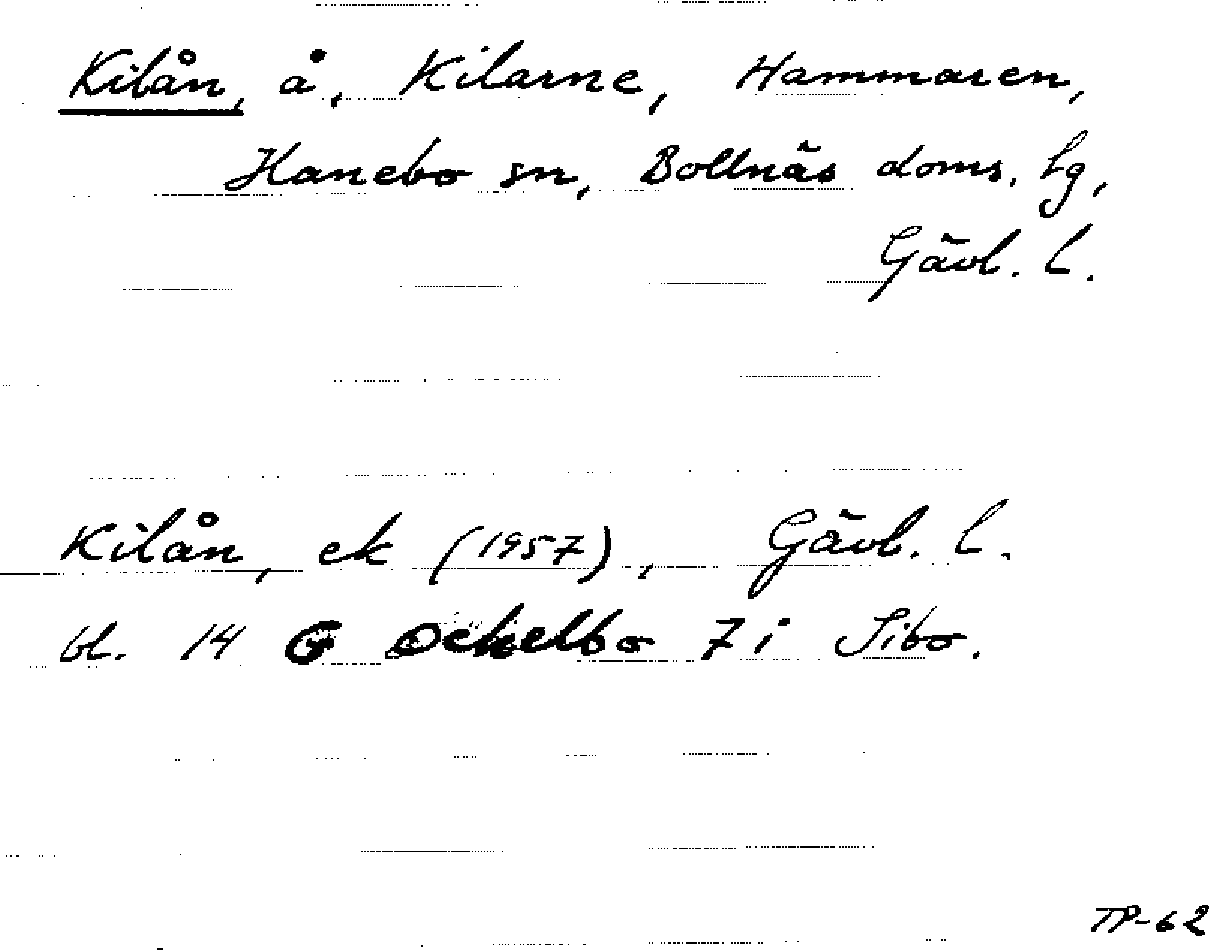 Kilån, å, Kilarne, Hammaren,
Hanebo sn, Bollnäs doms. lg,
Gävl. l.
Kilån, ek (1957), Gävl. l.
bl. 14 G Ockelbo 7 i Sibo.
TP-62